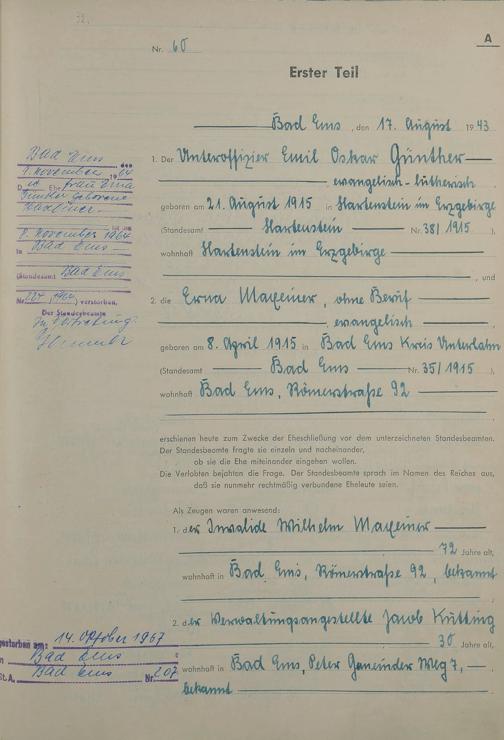 Nr. 60
A
Erster Teil
Bad Ems, den 17. August 1943
1. Der Unteroffizier Emil Oskar Günther
evangelisch-lutherisch
geboren am 21. August 1915 in Hartenstein im Erzgebirge
(Standesamt Hartenstein Nr. 38/1915).
wohnhaft Hartenstein im Erzgebirge
, und
2. die Erna Mayeiner, ohne Beruf
, evangelisch
geboren am 8. April 1915 in Bad Ems Kreis Unterlahn
(Standesamt Bad Ems Nr. 35/1915).
wohnhaft Bad Ems, Römerstraße 92
erschienen heute zum Zwecke der Eheschließung vor dem unterzeichneten Standesbeamten.
Der Standesbeamte fragte sie einzeln und nacheinander,
ob sie die Ehe miteinander eingehen wollen.
Die Verlobten bejahten die Frage. Der Standesbeamte sprach im Namen des Reiches aus,
daß sie nunmehr rechtmäßig verbundene Eheleute seien.
Als Zeugen waren anwesend:
1. der Invalide Wilhelm Mayeiner
72 Jahre alt,
wohnhaft in Bad Ems, Römerstraße 92, bekannt
2. der Verwaltungsangestellte Jacob Kütting
30 Jahre alt,
wohnhaft in Bad Ems, Peter Gemeinder Weg 7,
bekannt
Bad Ems, den
9. November 1964
D Ehefrau Erna
Günther geborene
ist am
8. November 1964
in Bad Ems
(Standesamt Bad Ems
Nr. /1964) verstorben.
Der Standesbeamte
In Vertretung:
gestorben am: 14. Oktober 1967
in Bad Ems
St.A. Bad Ems Nr. 207